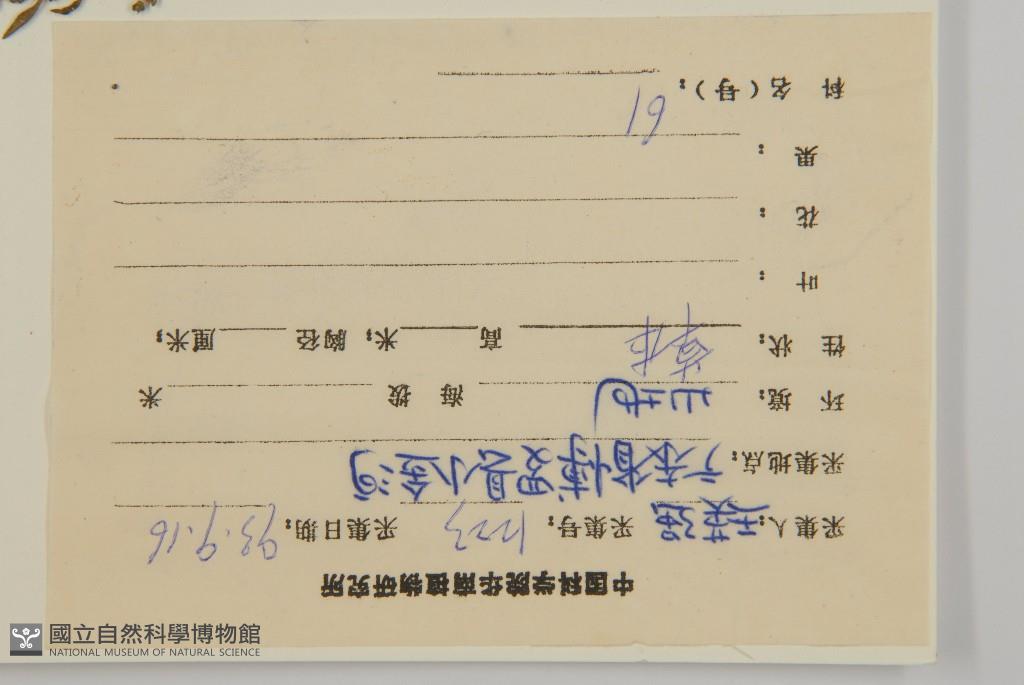 中国科学院华南植物研究所
采集人: 采集号: 1223 采集日期: 93.9.16
采集地点: 广东省博罗县小金河
环 境: 山地 海 拔 米
性 状: 草本 高 米; 胸径 厘米;
叶 :
花 :
果 :
科 名(号): 61
國立自然科學博物館
NATIONAL MUSEUM OF NATURAL SCIENCE